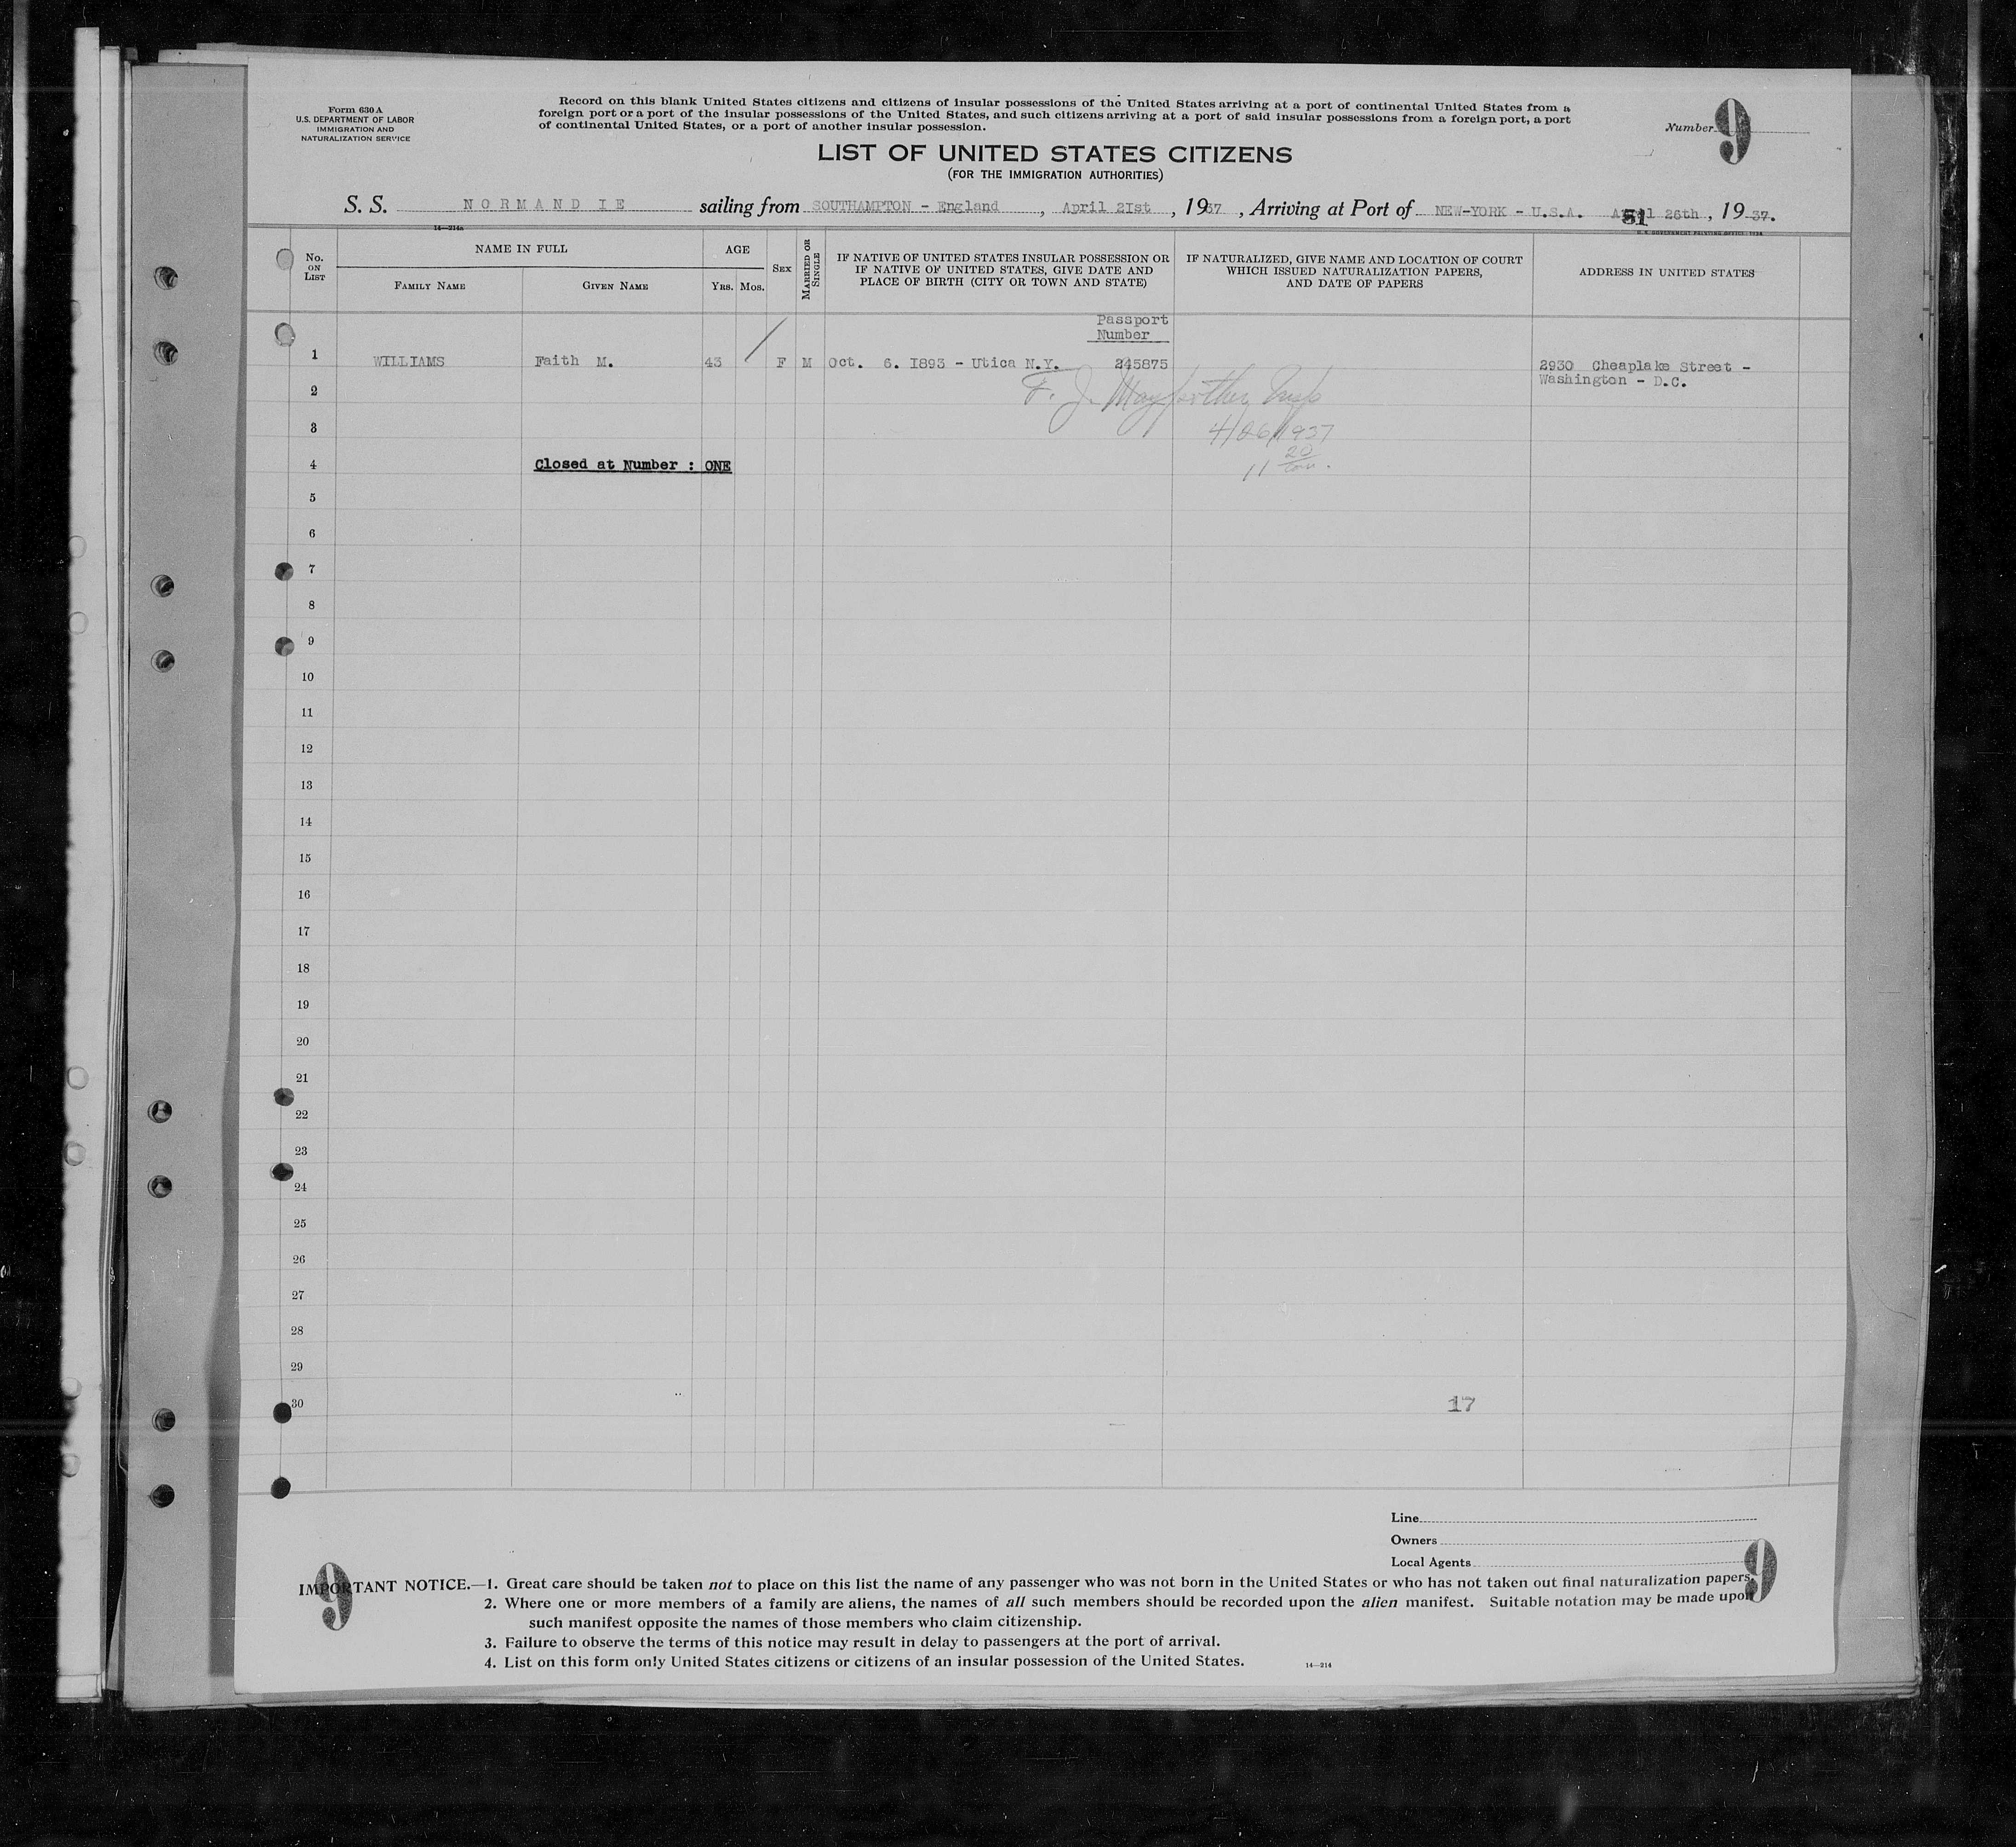 Form 630 A
U.S. DEPARTMENT OF LABOR
IMMIGRATION AND
NATURALIZATION SERVICE
Record on this blank United States citizens and citizens of insular possessions of the United States arriving at a port of continental United States from a
foreign port or a port of the insular possessions of the United States, and such citizens arriving at a port of said insular possessions from a foreign port, a port
of continental United States, or a port of another insular possession.
Number 9
LIST OF UNITED STATES CITIZENS
(FOR THE IMMIGRATION AUTHORITIES)
S. S. NORMANDIE sailing from SOUTHAMPTON - England, April 2Ist, 1937, Arriving at Port of NEW-YORK - U.S.A. April 26th, 1937.
51
14—214a
U.S. GOVERNMENT PRINTING OFFICE: 1934
No. ON LIST
NAME IN FULL
FAMILY NAME
GIVEN NAME
AGE
YRS. MOS.
SEX
MARRIED OR SINGLE
IF NATIVE OF UNITED STATES INSULAR POSSESSION OR
IF NATIVE OF UNITED STATES, GIVE DATE AND
PLACE OF BIRTH (CITY OR TOWN AND STATE)
IF NATURALIZED, GIVE NAME AND LOCATION OF COURT
WHICH ISSUED NATURALIZATION PAPERS,
AND DATE OF PAPERS
ADDRESS IN UNITED STATES
Passport
Number
1 WILLIAMS Faith M. 43 / F M Oct. 6. I893 - Utica N.Y. 245875 2930 Cheaplake Street -
Washington - D.C.
2 F. J. Insp
3 4/26/1937
4 Closed at Number : ONE 11 20
5
6
7
8
9
10
11
12
13
14
15
16
17
18
19
20
21
22
23
24
25
26
27
28
29
30 17
Line
Owners
Local Agents
9 9
IMPORTANT NOTICE.—1. Great care should be taken not to place on this list the name of any passenger who was not born in the United States or who has not taken out final naturalization papers.
2. Where one or more members of a family are aliens, the names of all such members should be recorded upon the alien manifest. Suitable notation may be made upon
such manifest opposite the names of those members who claim citizenship.
3. Failure to observe the terms of this notice may result in delay to passengers at the port of arrival.
4. List on this form only United States citizens or citizens of an insular possession of the United States.
14—214